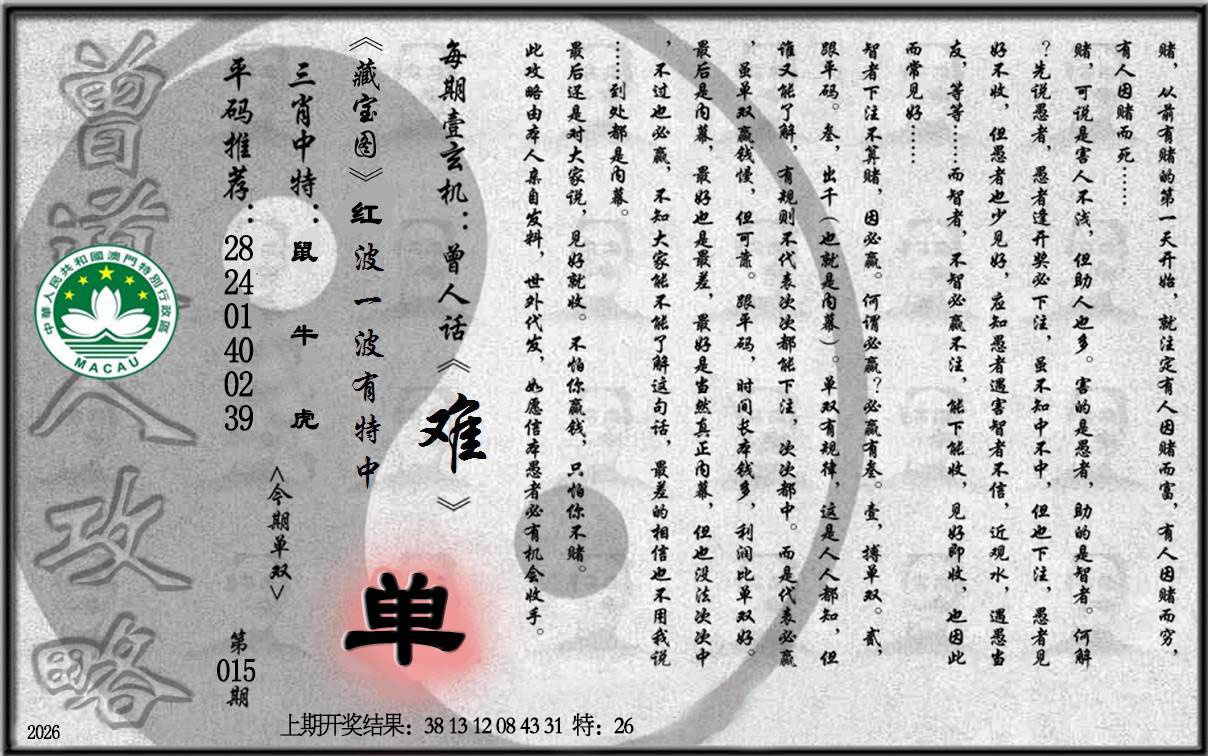 赌，从前有赌的第一天开始，就注定有人因赌而富，有人因赌而穷，
有人因赌而死……
赌，可说是害人不浅，但助人也多。害的是愚者，助的是智者。何解
？先说愚者，愚者逢开奖必下注，虽不知中不中，但也下注，愚者见
好不收，但愚者也少见好，应知愚者遇害智者不信，近观水，遇愚当
友，等等……而智者，不智必赢不注，能下能收，见好即收，也因此
而常见好……
智者下注不算赌，因必赢。何谓必赢？必赢有叁。壹，搏单双。贰，
跟平码。叁，出千（也就是内幕）。单双有规律，这是人人都知，但
谁又能了解，有规则不代表次次都能下注，次次都中。而是代表必赢
，虽单双赢钱慢，但可靠。跟平码，时间长本钱多，利润比单双好。
最后是内幕，最好也是最差，最好是当然真正内幕，但也没法次次中
，不过也必赢，不知大家能不能了解这句话，最差的相信也不用我说
……到处都是内幕。
最后还是对大家说，见好就收。不怕你赢钱，只怕你不赌。
此攻略由本人亲自发料，世外代发，如愿信本愚者必有机会收手。
每期壹玄机：曾人话《难》
《藏宝图》红波一波有特中
单
三肖中特：鼠牛虎
<今期单双>
平码推荐：28 24 01 40 02 39
第015期
曾道人攻略
中華人民共和國澳門特別行政區
MACAU
2026
上期开奖结果：38 13 12 08 43 31 特：26